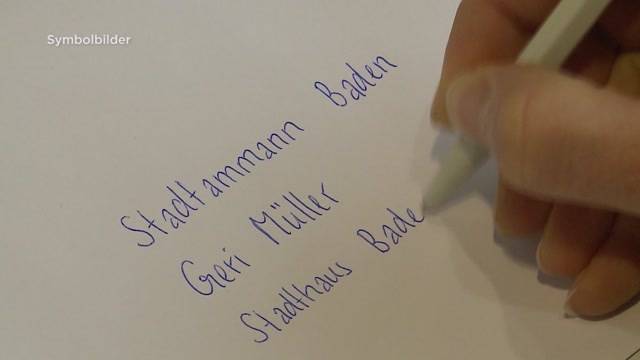 Symbolbilder
Stadtammann Baden
Geri Müller
Stadthaus Bade